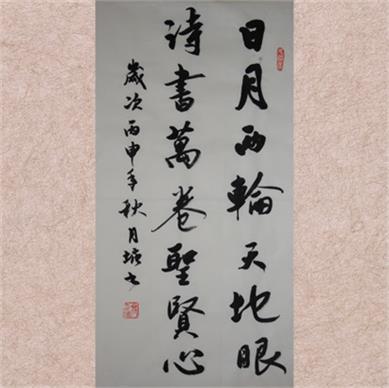 日月两輪天地眼
詩書萬卷聖賢心
歲次丙申年秋月培书